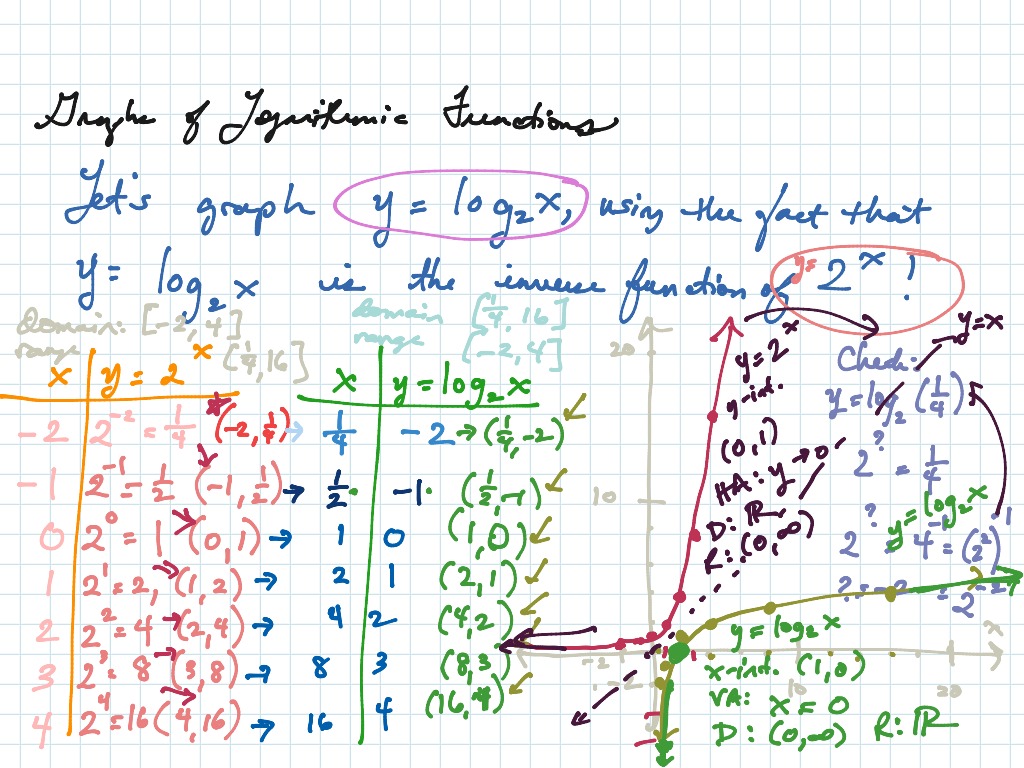 Graphs of Logarithmic Functions
Let's graph y = log₂x, using the fact that
y = log₂x is the inverse function of y = 2ˣ!
Domain: [-2, 4]
range [1/4, 16]
x y = 2ˣ
-2 2⁻² = 1/4 (-2, 1/4) →
-1 2⁻¹ = 1/2 (-1, 1/2) →
0 2⁰ = 1 (0, 1) →
1 2¹ = 2, (1, 2) →
2 2² = 4 (2, 4) →
3 2³ = 8 (3, 8) →
4 2⁴ = 16 (4, 16) →
Domain [1/4, 16]
range [-2, 4]
x y = log₂x
1/4 -2 → (1/4, -2)
1/2 -1 (1/2, -1)
1 0 (1, 0)
2 1 (2, 1)
4 2 (4, 2)
8 3 (8, 3)
16 4 (16, 4)
20
10
-2
-2
10
20
x
y = 2ˣ
y-int.
(0, 1)
HA: y → 0
D: ℝ
R: (0, ∞)
y = x
Check:
y = log₂(1/4)
2^? = 1/4
2^? = 4⁻¹ = (2²)⁻¹
? = -2 = 2⁻²
y = log₂x
y = log₂x
x-int. (1, 0)
VA: x = 0
D: (0, ∞) R: ℝ